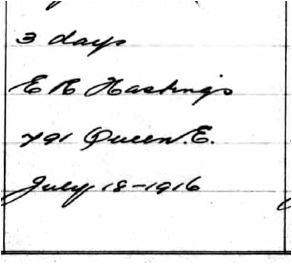 3 days
E R Hastings
791 Queen. E.
July 18-1916